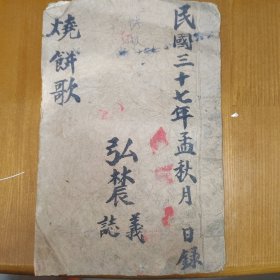 民國三十七年孟秋月 日錄
弘農
義誌
燒餅歌